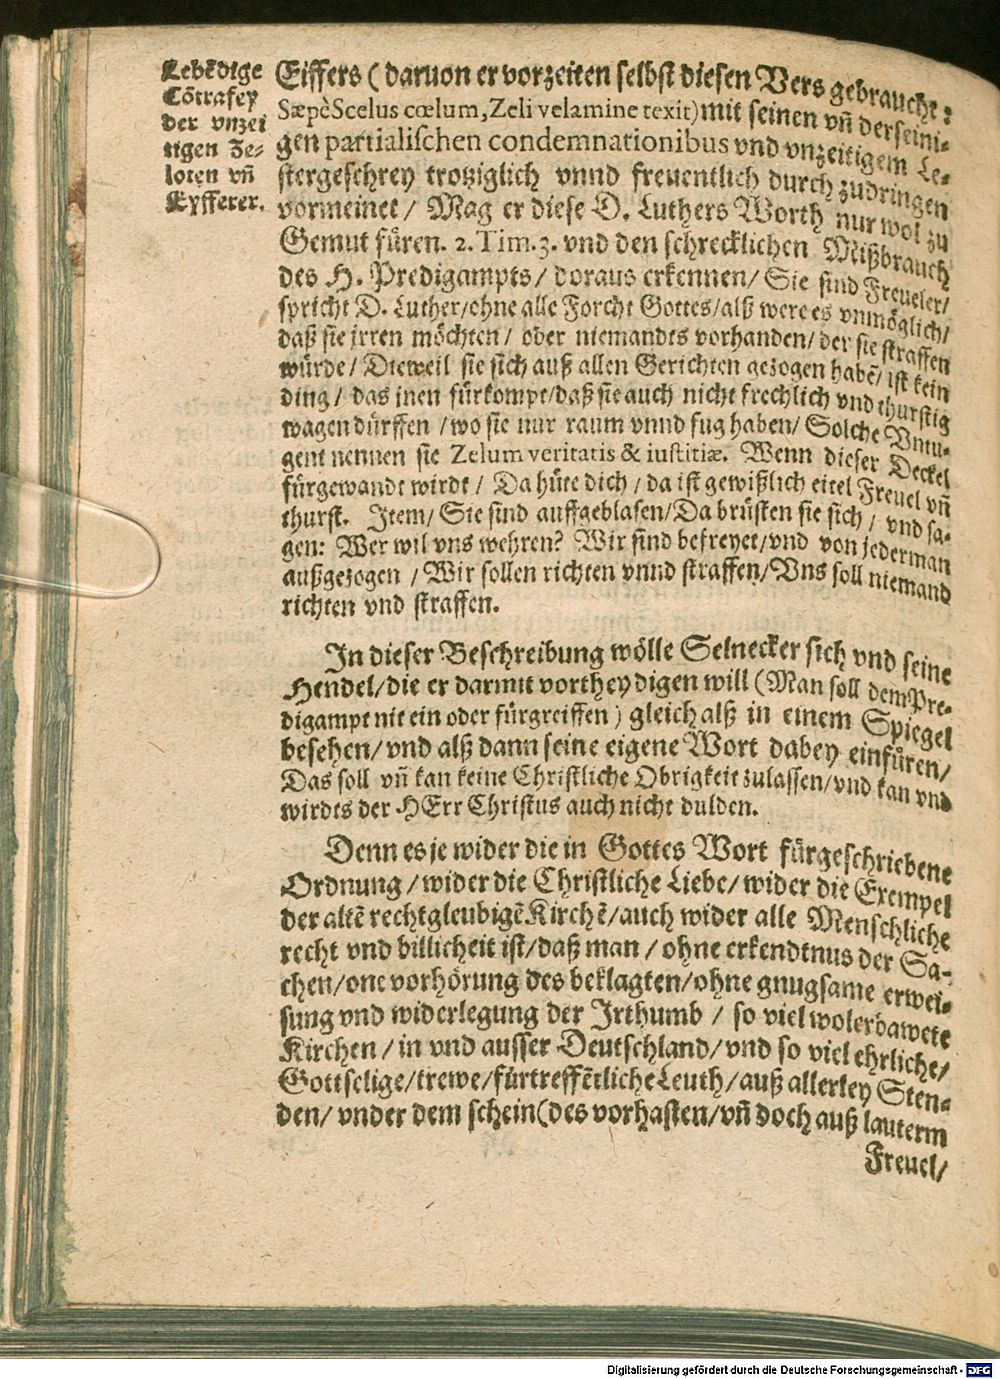 Lebēdige
Cōtrafey
der vnzei
tigen Ze-
loten vñ
Eyfferer.
Eiffers (daruon er vorzeiten selbst diesen Vers gebraucht:
Sæpè Scelus cœlum, Zeli velamine texit) mit seinen vñ der seini-
gen partialischen condemnationibus vnd vnzeitigem Le-
stergeschrey trotziglich vnnd freuentlich durch zudringen
vormeinet / Mag er diese D. Luthers Worth nur wol zu
Gemut füren. 2. Tim. 3. vnd den schrecklichen Mißbrauch
des H. Predigampts / doraus erkennen / Sie sind Freueler /
spricht D. Luther / ohne alle Forcht Gottes / alß were es vnmöglich /
daß sie jrren möchten / oder niemandts vorhanden / der sie straffen
würde / Dieweil sie sich auß allen Gerichten gezogen habē / ist kein
ding / das inen fürkompt / daß sie auch nicht frechlich vnd thurstig
wagen dürffen / wo sie nur raum vnnd fug haben / Solche Vntu-
gent nennen sie Zelum veritatis & iustitiæ. Wenn dieser Deckel
fürgewandt wirdt / Da hüte dich / da ist gewißlich eitel Freuel vñ
thurst. Item / Sie sind auffgeblasen / Da brüsten sie sich / vnd sa-
gen: Wer wil vns wehren? Wir sind befreyet / vnd von jederman
außgezogen / Wir sollen richten vnnd straffen / Vns soll niemand
richten vnd straffen.
In dieser Beschreibung wölle Selnecker sich vnd seine
Hendel / die er darmit vortheydigen will (Man soll dem Pre-
digampt nit ein oder fürgreiffen) gleich alß in einem Spiegel
besehen / vnd alß dann seine eigene Wort dabey einfüren /
Das soll vñ kan keine Christliche Obrigkeit zulassen / vnd kan vnd
wirdts der HErr Christus auch nicht dulden.
Denn es je wider die in Gottes Wort fürgeschriebene
Ordnung / wider die Christliche Liebe / wider die Exempel
der altē rechtgleubigē Kirchē / auch wider alle Menschliche
recht vnd billicheit ist / daß man / ohne erkendtnus der Sa-
chen / one vorhörung des beklagten / ohne gnugsame erwei-
sung vnd widerlegung der Irthumb / so viel wolerbawete
Kirchen / in vnd ausser Deutschland / vnd so viel ehrliche /
Gottselige / trewe / fürtreffētliche Leuth / auß allerley Sten-
den / vnder dem schein (des vorhasten / vñ doch auß lauterm
Freuel /
Digitalisierung gefördert durch die Deutsche Forschungsgemeinschaft - DFG